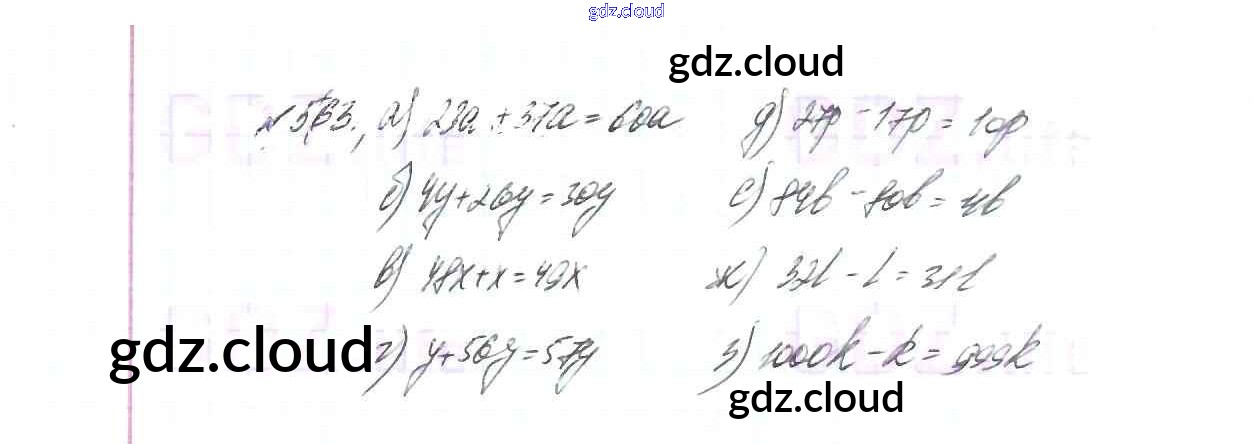 gdz.cloud
gdz.cloud
№ 563. а) 23a + 37a = 60a
б) 4y + 26y = 30y
в) 48x + x = 49x
г) y + 56y = 57y
д) 27p - 17p = 10p
е) 84b - 80b = 4b
ж) 32l - l = 31l
з) 1000k - k = 999k
gdz.cloud
gdz.cloud